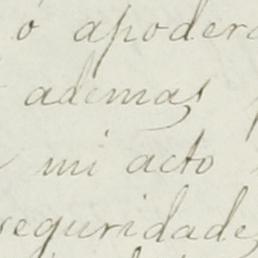 ó apodera
ademas
mi acto
seguridades